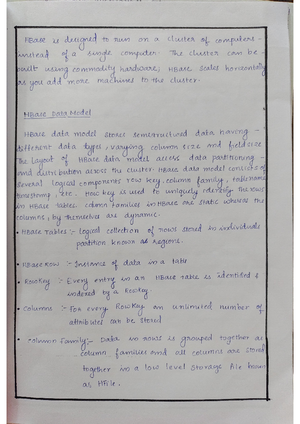 HBase is designed to run on a cluster of computers
instead of a single computer. The cluster can be
built using commodity hardware; HBase scales horizontally
as you add more machines to the cluster.
HBase Data Model
HBase data model stores semistructured data having
different data types, varying column size and field size
The layout of HBase data model access data partitioning
and distribution across the cluster. HBase data model consists of
several logical components row key, column family, table name,
timestamp, etc. Row key is used to uniquely identify the rows
in HBase tables. Column families in HBase are static whereas the
columns, by themselves are dynamic.
• HBase Tables :- Logical collection of rows stored in individual
partition known as regions.
• HBase Row :- Instance of data in a table
• RowKey :- Every entry in an HBase table is identified &
indexed by a RowKey
• Columns :- For every RowKey an unlimited number of
attributes can be stored
• Column Family:- Data in rows is grouped together as
column families and all columns are stored
together in a low level storage file known
as HFile.